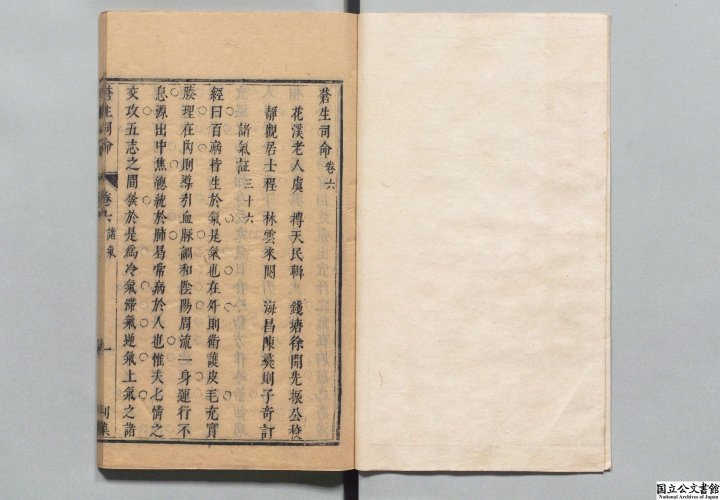 蒼生司命卷六
花溪老人虞 摶天民輯 錢塘徐開先振公校
靜觀居士程 林雲來閱 海昌陳奕則子奇訂
諸氣証三十六
經曰百病皆生於氣是氣也在外則衛護皮毛充實
腠理在內則導引血脉調和陰陽周流一身運行不
息源出中焦總統於肺曷常病於人也惟夫七情之
交攻五志之間發於是爲冷氣滯氣逆氣上氣之諸
蒼生司命 卷六諸氣 一
国立公文書館
National Archives of Japan